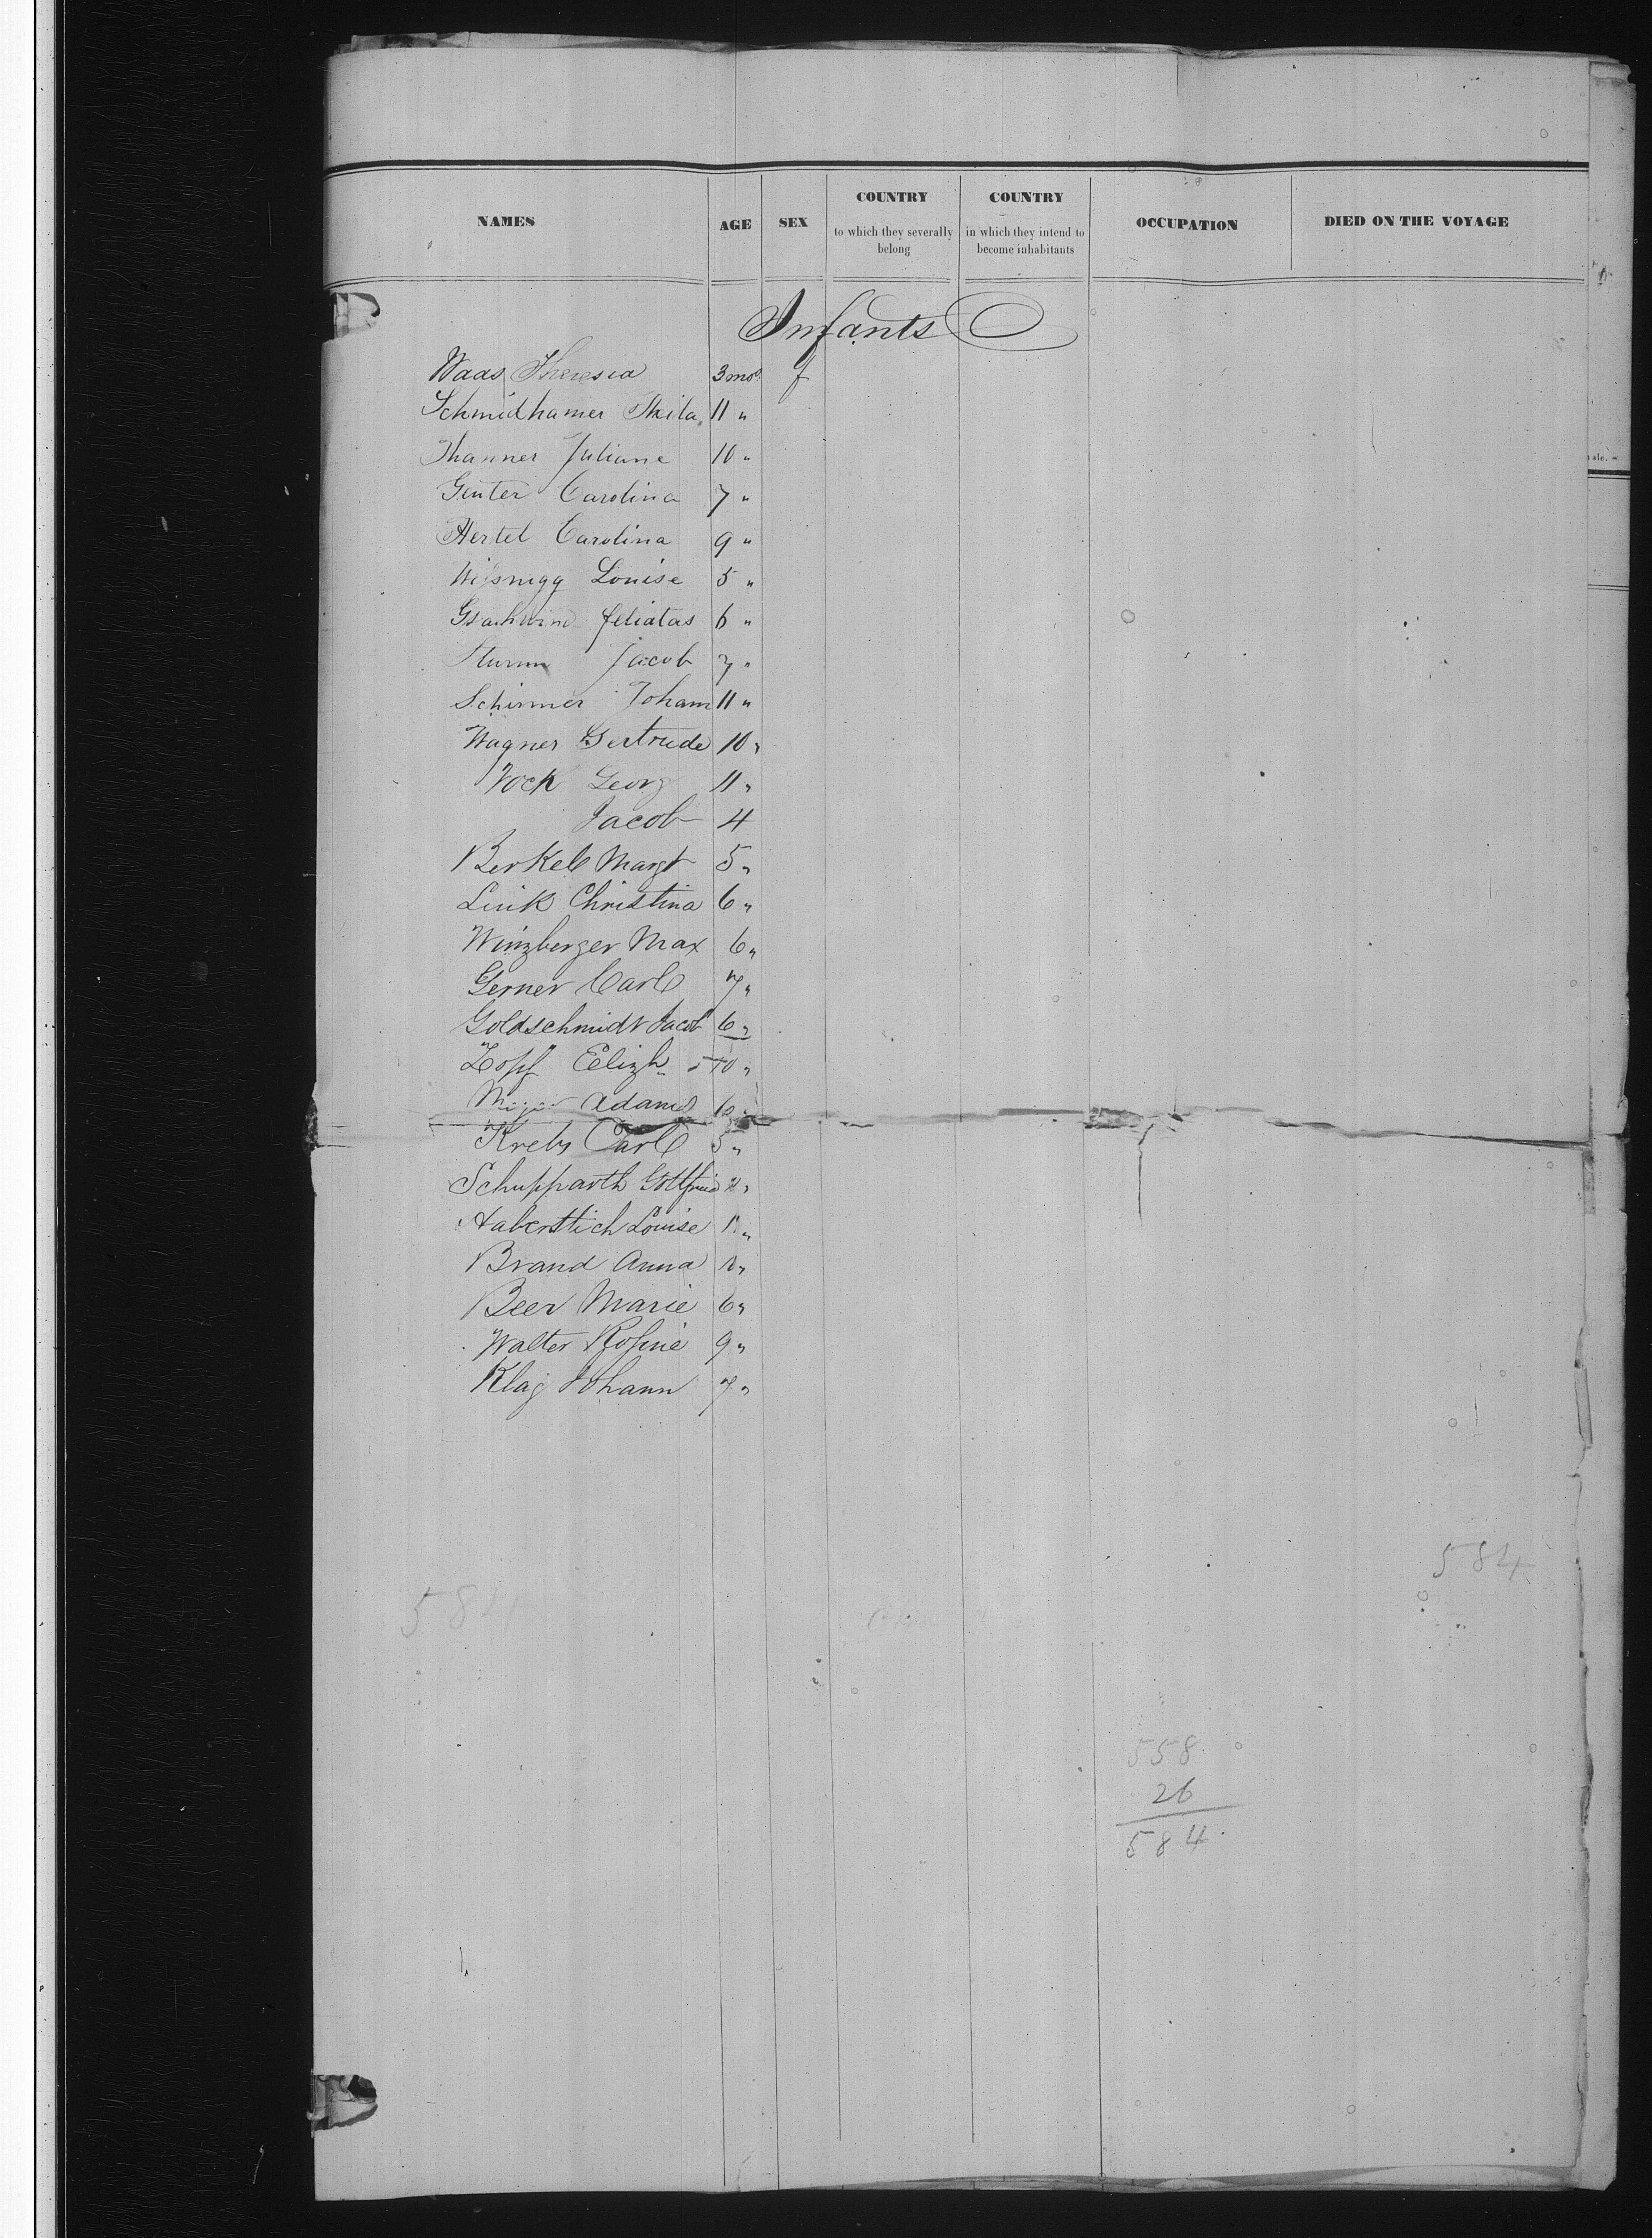 NAMES AGE SEX COUNTRY to which they severally belong COUNTRY in which they intend to become inhabitants OCCUPATION DIED ON THE VOYAGE
Infants
Waas Theresia 3 mos f
Schmidhamer 11 "
Thanner Juliane 10 "
Genter Carolina 7 "
Hertel Carolina 9 "
Louise 5 "
Gsachwind feliatas 6 "
Sturm Jacob 7 "
Schirmer Johann 11 "
Wagner Gertrude 10 "
Vock Georg 11 "
Jacob 4
Berkel Margt 5 "
Link Christina 6 "
Winzberger Max 6 "
Gerner Carl 7 "
Goldschmidt Jacob 6 "
Zopf Elizh 10 "
Adam
Krebs Carl 5 "
Schupparth Gottfried
Haberstich Louise
Brand Anna
Beer Marie 6 "
Walter Rosine 9 "
Klag Johann 7 "
584
584
558
26
584